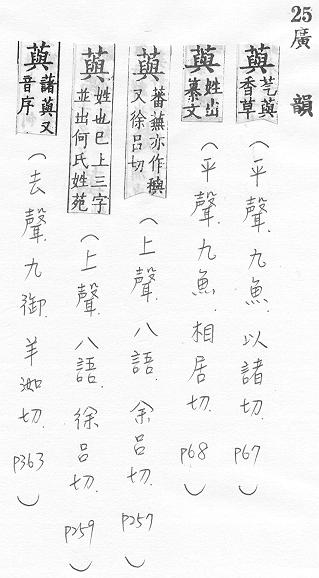 25 廣韻
藇 芞藇香草（平聲九魚 以諸切. p67）
藇 姓出纂文（平聲九魚 相居切. p68）
藇 蕃蕪亦作穥又徐呂切（上聲. 八語. 余呂切. p257）
藇 姓也巳上三字並出何氏姓苑（上聲 八語. 徐呂切. p259）
藇 藷藇又音序（去聲九御 羊洳切. p363）